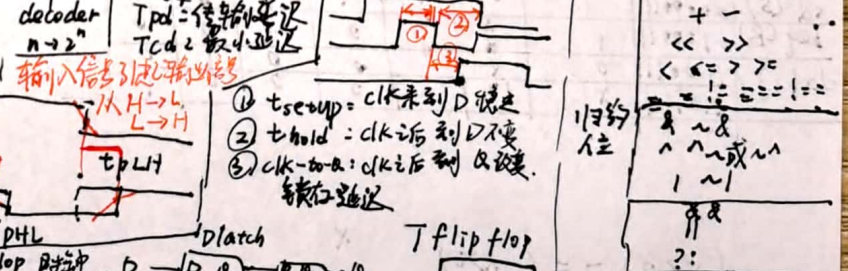 decoder
n→2ⁿ
Tpd = 传输延迟
Tcd = 最小延迟
输入信号引起输出信号
从 H→L
L→H
tpLH
pHL
① ②
③
① tsetup = clk来到D稳定
② thold : clk之后到D不变
③ clk-to-Q : clk之后到Q改变.
锁存器延迟
D latch
T flip flop
归约
位
+ -
<< >>
< <= > >=
== != === !==
& ~&
^ ^~或~^
| ~|
&&
||
?: